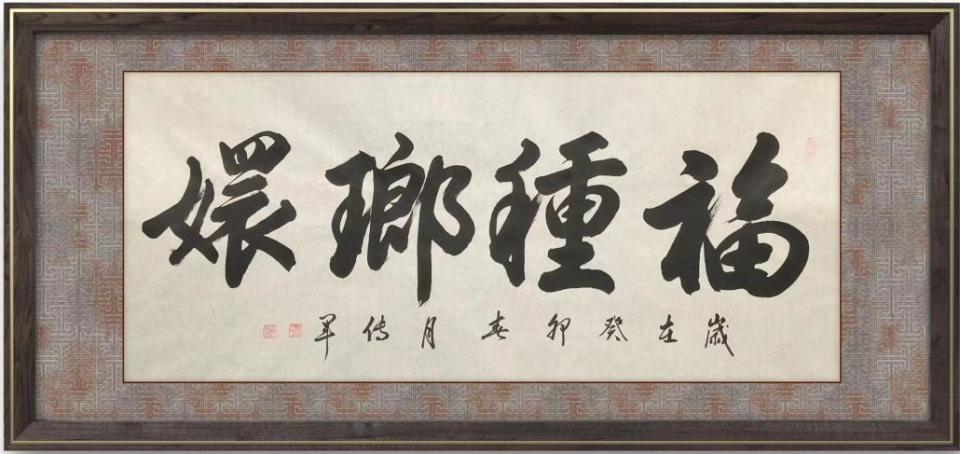 福種瑯嬛
歲在癸卯春月